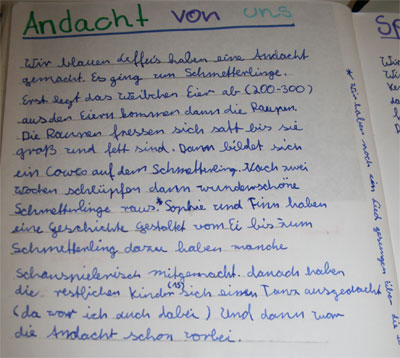 Andacht von uns
Wir blauen Leffeis haben eine Andacht
gemacht. Es ging um Schmetterlinge.
Erst legt das Weibchen Eier ab (200-300)
aus den Eiern kommen dann die Raupen.
Die Raupen fressen sich satt bis sie
groß und fett sind. Dann bildet sich
ein Cowco auf dem Schmetterling. Nach zwei
wochen schlüpfen dann wunderschöne
Schmetterlinge raus.* Sophie und Finn haben
eine Geschichte gestaltet vom Ei bis zum
Schmetterling dazu haben manche
Schauspielerisch mitgemacht. danach haben
die restlichen Kinder (15) sich einen Tanz ausgedacht
(da war ich auch dabei) Und dann war
die Andacht schon vorbei.
* wir haben noch ein Lied gesungen über die